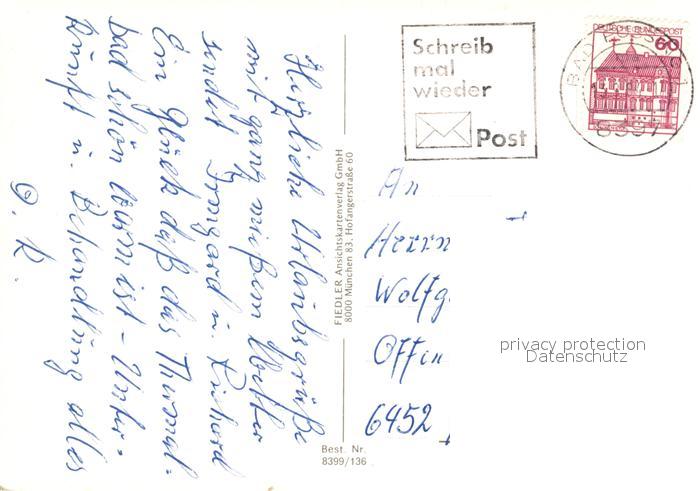 Herzliche Urlaubsgrüße
mit ganz miesem Wetter
sendet Irmgard u. Richard
Ein Glück daß das Thermal-
bad schön warm ist - Unter-
kunft u. Behandlung alles
O.K.
FIEDLER Ansichtskartenverlag GmbH
8000 München 83, Hofangerstraße 60
Best. Nr.
8399/136
Schreib
mal
wieder
Post
DEUTSCHE BUNDESPOST
60
BAD
8397
An
Herrn
Wolfg
Offen
6452
privacy protection
Datenschutz